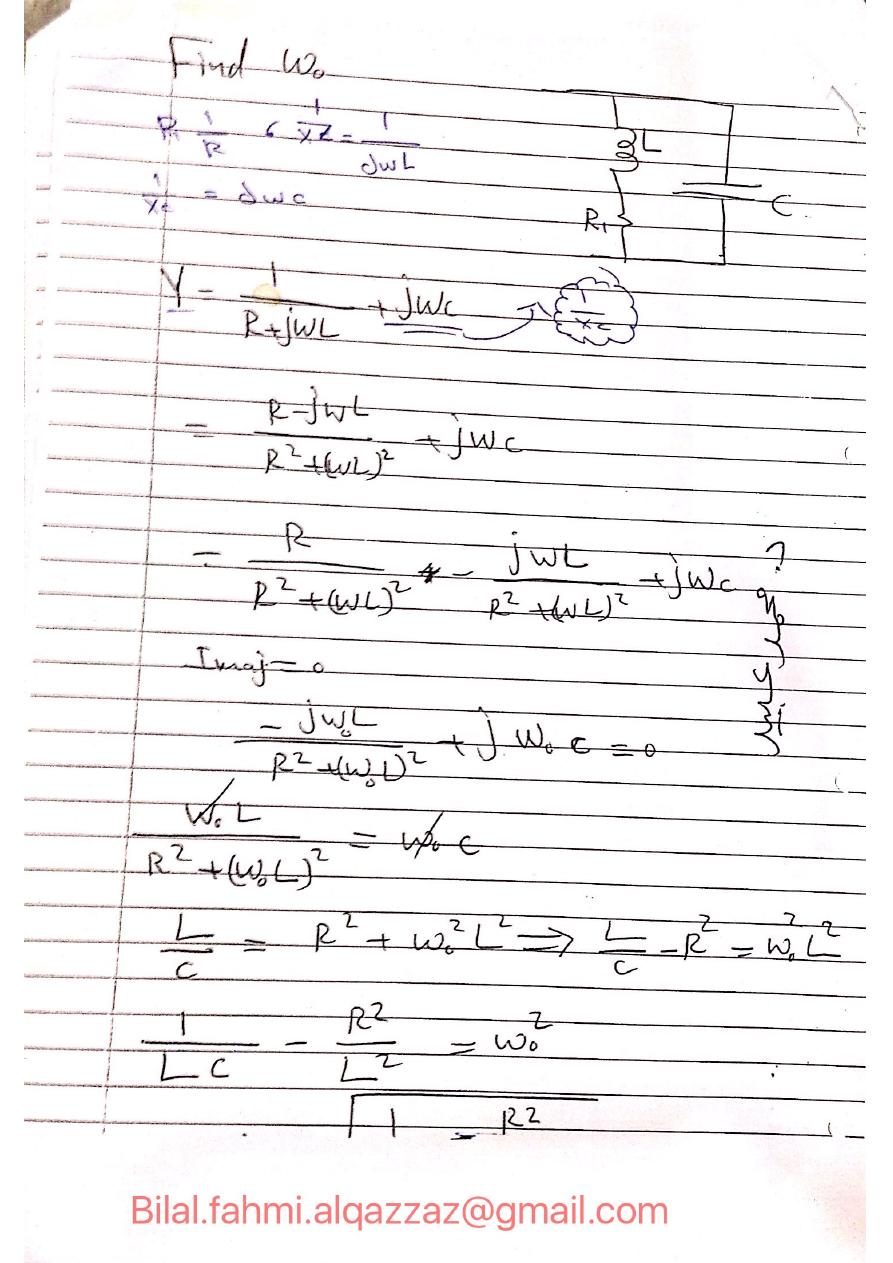 Find W₀
R 1/R , 1/XL = 1/jwL
1/Xc = jwc
L
C
R₁
Y = 1/(R+jwL) + jwc
1/Xc
= (R-jwL)/(R²+(wL)²) + jwc
= R/(R²+(wL)²) - jwL/(R²+(wL)²) + jwc ?
Imaj = 0
-jw₀L/(R²+(w₀L)²) + j w₀ c = 0
w₀L/(R²+(w₀L)²) = w₀c
L/c = R² + w₀²L² ⇒ L/c - R² = w₀²L²
1/LC - R²/L² = w₀²
√ 1 - R²
Bilal.fahmi.alqazzaz@gmail.com